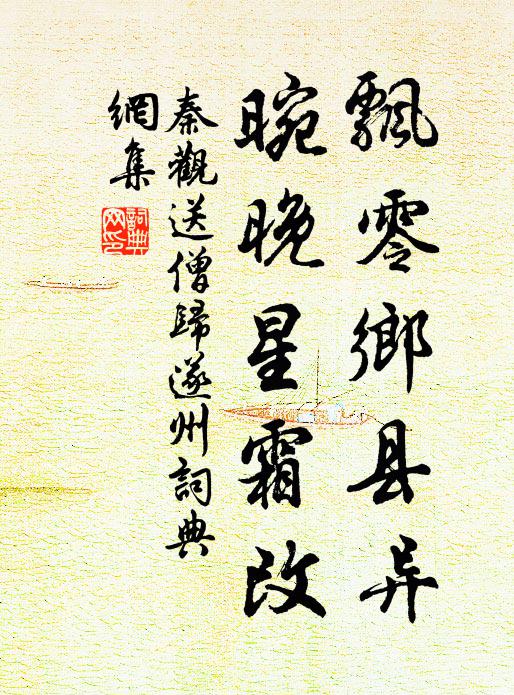 飄零鄉县异
晼晚星霜改
秦觀送僧歸遂州詞典
網集
詞典网印